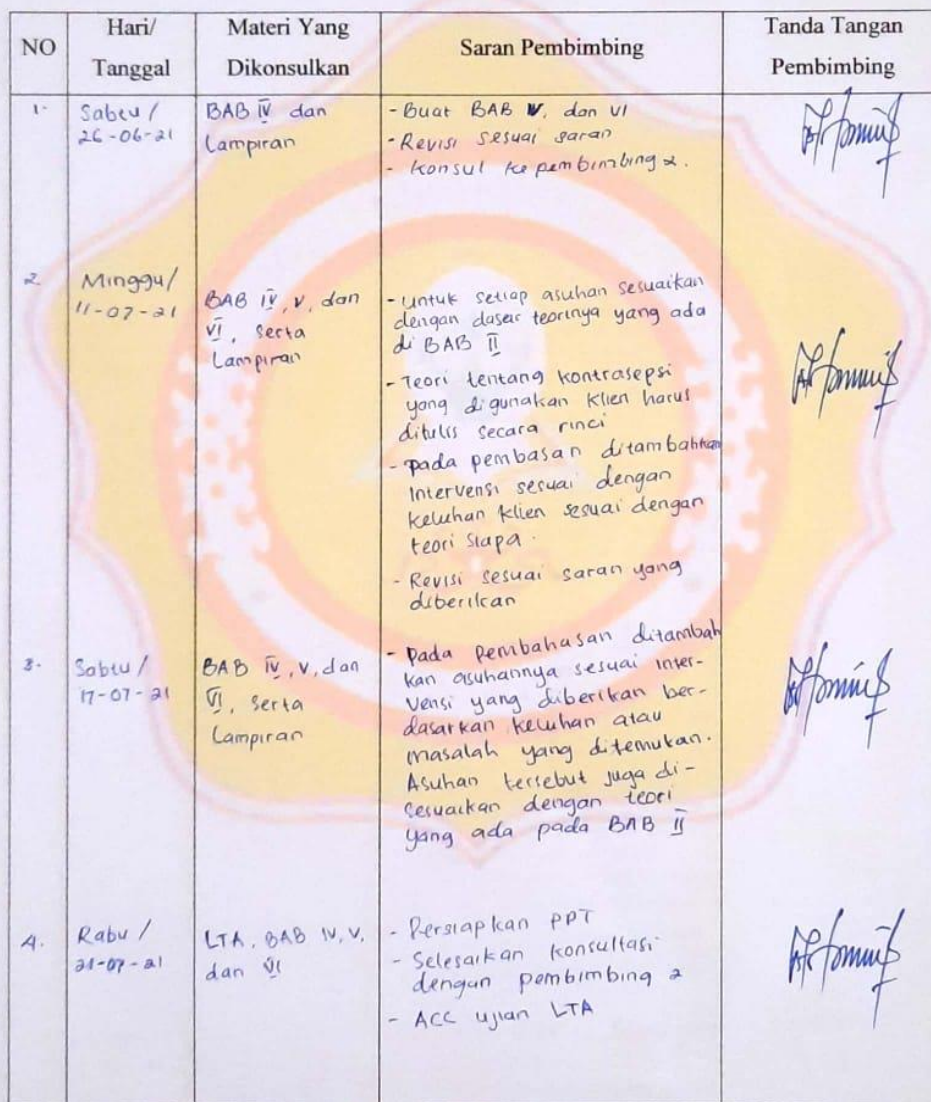 NO
Hari/
Tanggal
Materi Yang
Dikonsulkan
Saran Pembimbing
Tanda Tangan
Pembimbing
1.
Sabtu /
26-06-21
BAB IV dan
Lampiran
- Buat BAB V. dan VI
- Revisi sesuai saran
- konsul ke pembimbing 2.
2.
Minggu/
11-07-21
BAB IV, V, dan
VI, serta
Lampiran
- Untuk setiap asuhan sesuaikan
dengan dasar teorinya yang ada
di BAB II
- Teori tentang kontrasepsi
yang digunakan klien harus
ditulis secara rinci
- pada pembasan ditambahkan
intervensi sesuai dengan
keluhan klien sesuai dengan
teori siapa.
- Revisi sesuai saran yang
diberikan
3.
Sabtu /
17-07-21
BAB IV, V, dan
VI, serta
Lampiran
- Pada pembahasan ditambah
kan asuhannya sesuai inter-
vensi yang diberikan ber-
dasarkan keluhan atau
masalah yang ditemukan.
Asuhan tersebut juga di-
sesuaikan dengan teori
yang ada pada BAB II
4.
Rabu /
21-07-21
LTA, BAB IV, V,
dan VI
- Persiapkan PPT
- Selesaikan konsultasi
dengan pembimbing 2
- ACC ujian LTA